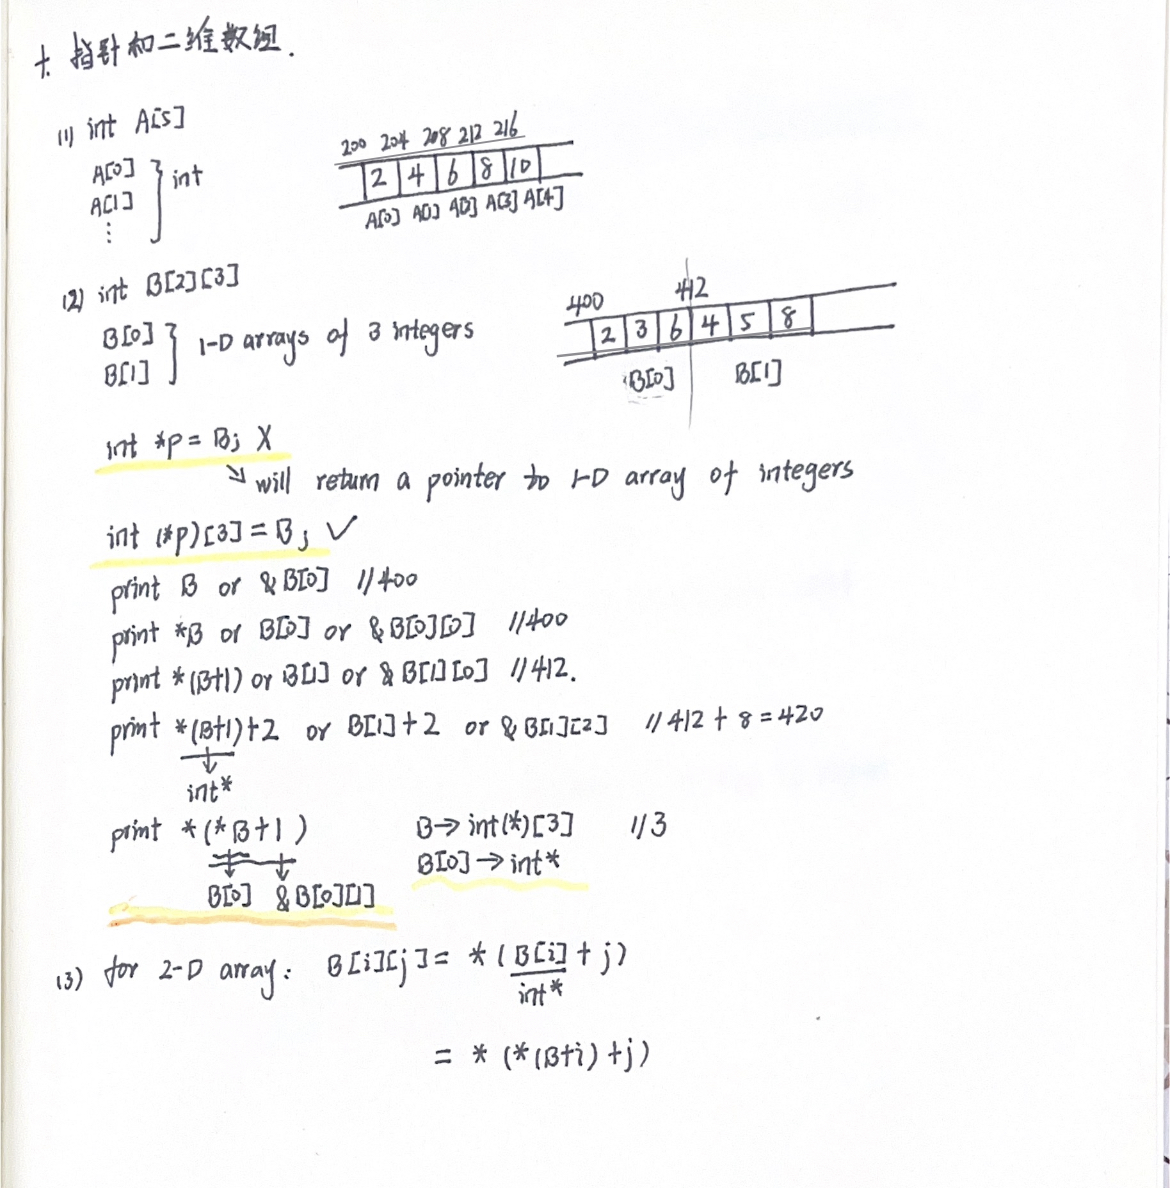 十. 指针和二维数组.
(1) int A[5]
200 204 208 212 216
A[0]
A[1]
⋮
int
2 4 6 8 10
A[0] A[1] A[2] A[3] A[4]
(2) int B[2][3]
400 412
B[0]
B[1]
1-D arrays of 3 integers
2 3 6 4 5 8
B[0] B[1]
int *p = B; X
↘ will return a pointer to 1-D array of integers
int (*p)[3] = B; ✓
print B or &B[0] //400
print *B or B[0] or &B[0][0] //400
print *(B+1) or B[1] or &B[1][0] //412.
print *(B+1)+2 or B[1]+2 or &B[1][2] //412 + 8 = 420
int*
print *(*B+1) B→int(*)[3] //3
B[0]→int*
B[0] &B[0][1]
(3) for 2-D array: B[i][j] = *(B[i] + j)
int*
= *(*(B+i)+j)